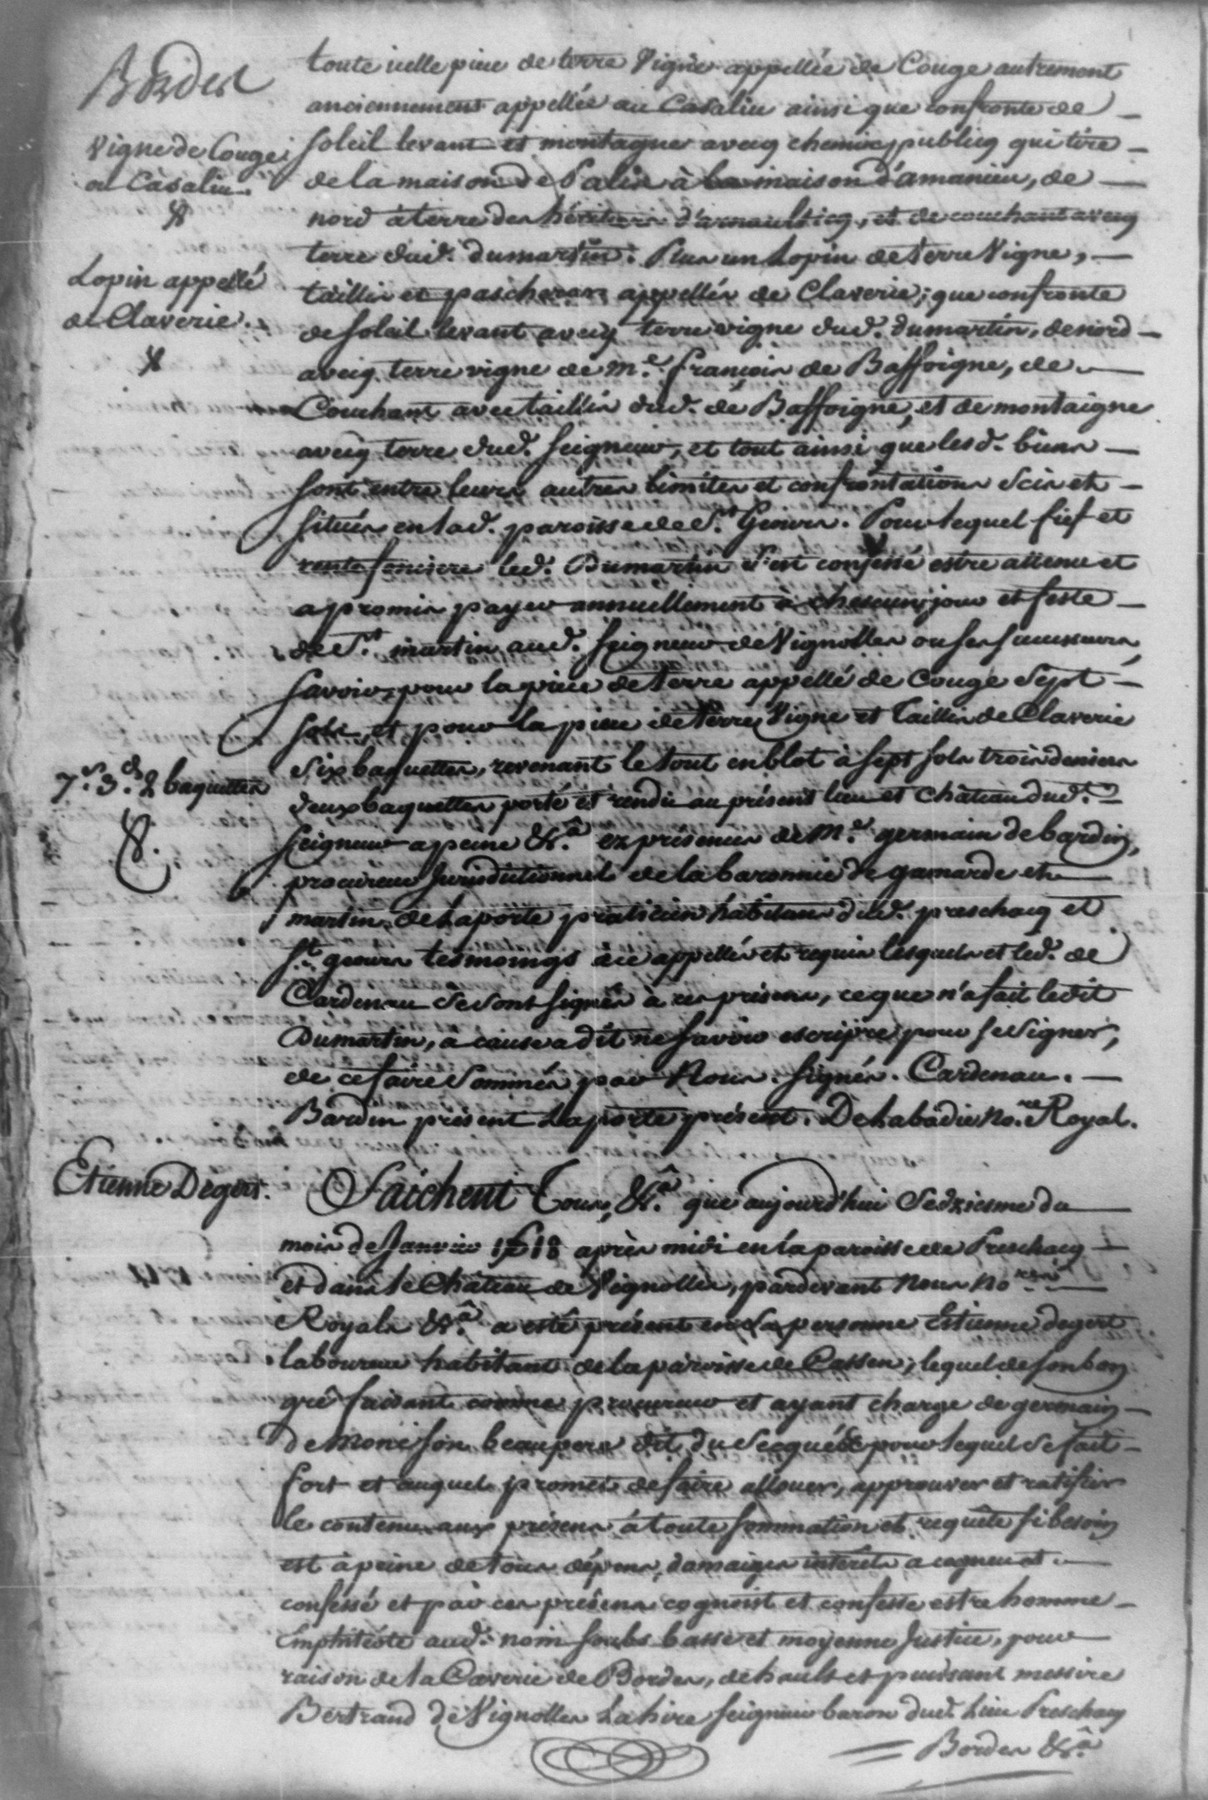 Bordes
toute icelle piece de terre Vigne appellée de Couge autrement
anciennement appellée au Casaliu ainsi que confronte de
Vigne de Couge
ou Casaliu.
soleil levant et montagne avecq chemin publicq qui tire
de la maison de Palin à la maison d'amanieu, de
nord à terre des héritiers d'arnault, et de couchant avecq
terre dud. dumartin: Plus un Lopin de terre Vigne,
Lopin appellé
de Claverie.
taillis et pascheran appellés de Claverie, que confronte
de soleil levant avecq terre vigne dud. dumartin, de nord
avecq terre vigne de m.e françois de Baffoigne, de
Couchant avec taillis dud. de Baffoigne, et de montaigne
avecq terre dud. seigneur, et tout ainsi que lesd. biens
sont entre leurs autres limites et confrontations scis et
situés en lad. paroisse de S.t Geours. Pour lequel fief et
rente fonciere led. Dumartin s'est confessé estre attenu et
a promis payer annuellement à chascun jour et feste
de S.t martin aud. seigneur de Vignolles ou ses successeurs,
savoir, pour la piece de terre appellé de Couge Sept
sols, et pour la piece de terre Vigne et Taillis de Claverie
7.s 3.d 2 baquettes
six baquettes, revenant le tout en blot à sept sols trois deniers
deux baquettes porté et rendu au présent lieu et château dud.
seigneur a peine &.a ez présences de M.e germain de bardin,
procureur Jurisdictionnel de la baronnie de gamarde et
martin de Laporte praticien habitans dud. preschacq et
S.t geours tesmoings a ce appellés et requis lesquels et led. de
Cardenau se sont signés à ces présens, ce que n'a fait ledit
Dumartin, a cause a dit ne savoir escripre pour se signer,
de ce faire sommés par Nous. Signés. Cardenau.
Bardin présent Laporte présent. Dehabadie No.re Royal.
Etienne Degert.
Saichent Tous, &.a que aujourd'hui Sedziesme du
mois de Janvier 1618 après midi en la paroisse de Preschacq
et dans le Château de Vignolles, pardevant Nous No.res
Royals &.a a esté présent en sa personne Estienne degert
laboureur habitant de la paroisse de Cassen, lequel de son bon
gré faisant comme procureur et ayant charge de germain
de Monci son beaupere dit du Secqué pour lequel se fait
fort et auquel promet de faire allouer, approuver et ratifier
le contenu aux présens à toute sommation et requête si besoin
est à peine de tous dépens, damaiges intérêts a cogneu et
confessé et par ces présens cognoist et confesse estre homme
Emphitéote aud. nom soubs basse et moyenne Justice, pour
raison de la Caverie de Bordes, de hault et puissant messire
Bertrand de Vignolles Lahire seigneur baron dud. Lieu Preschacq
Bordes &.a